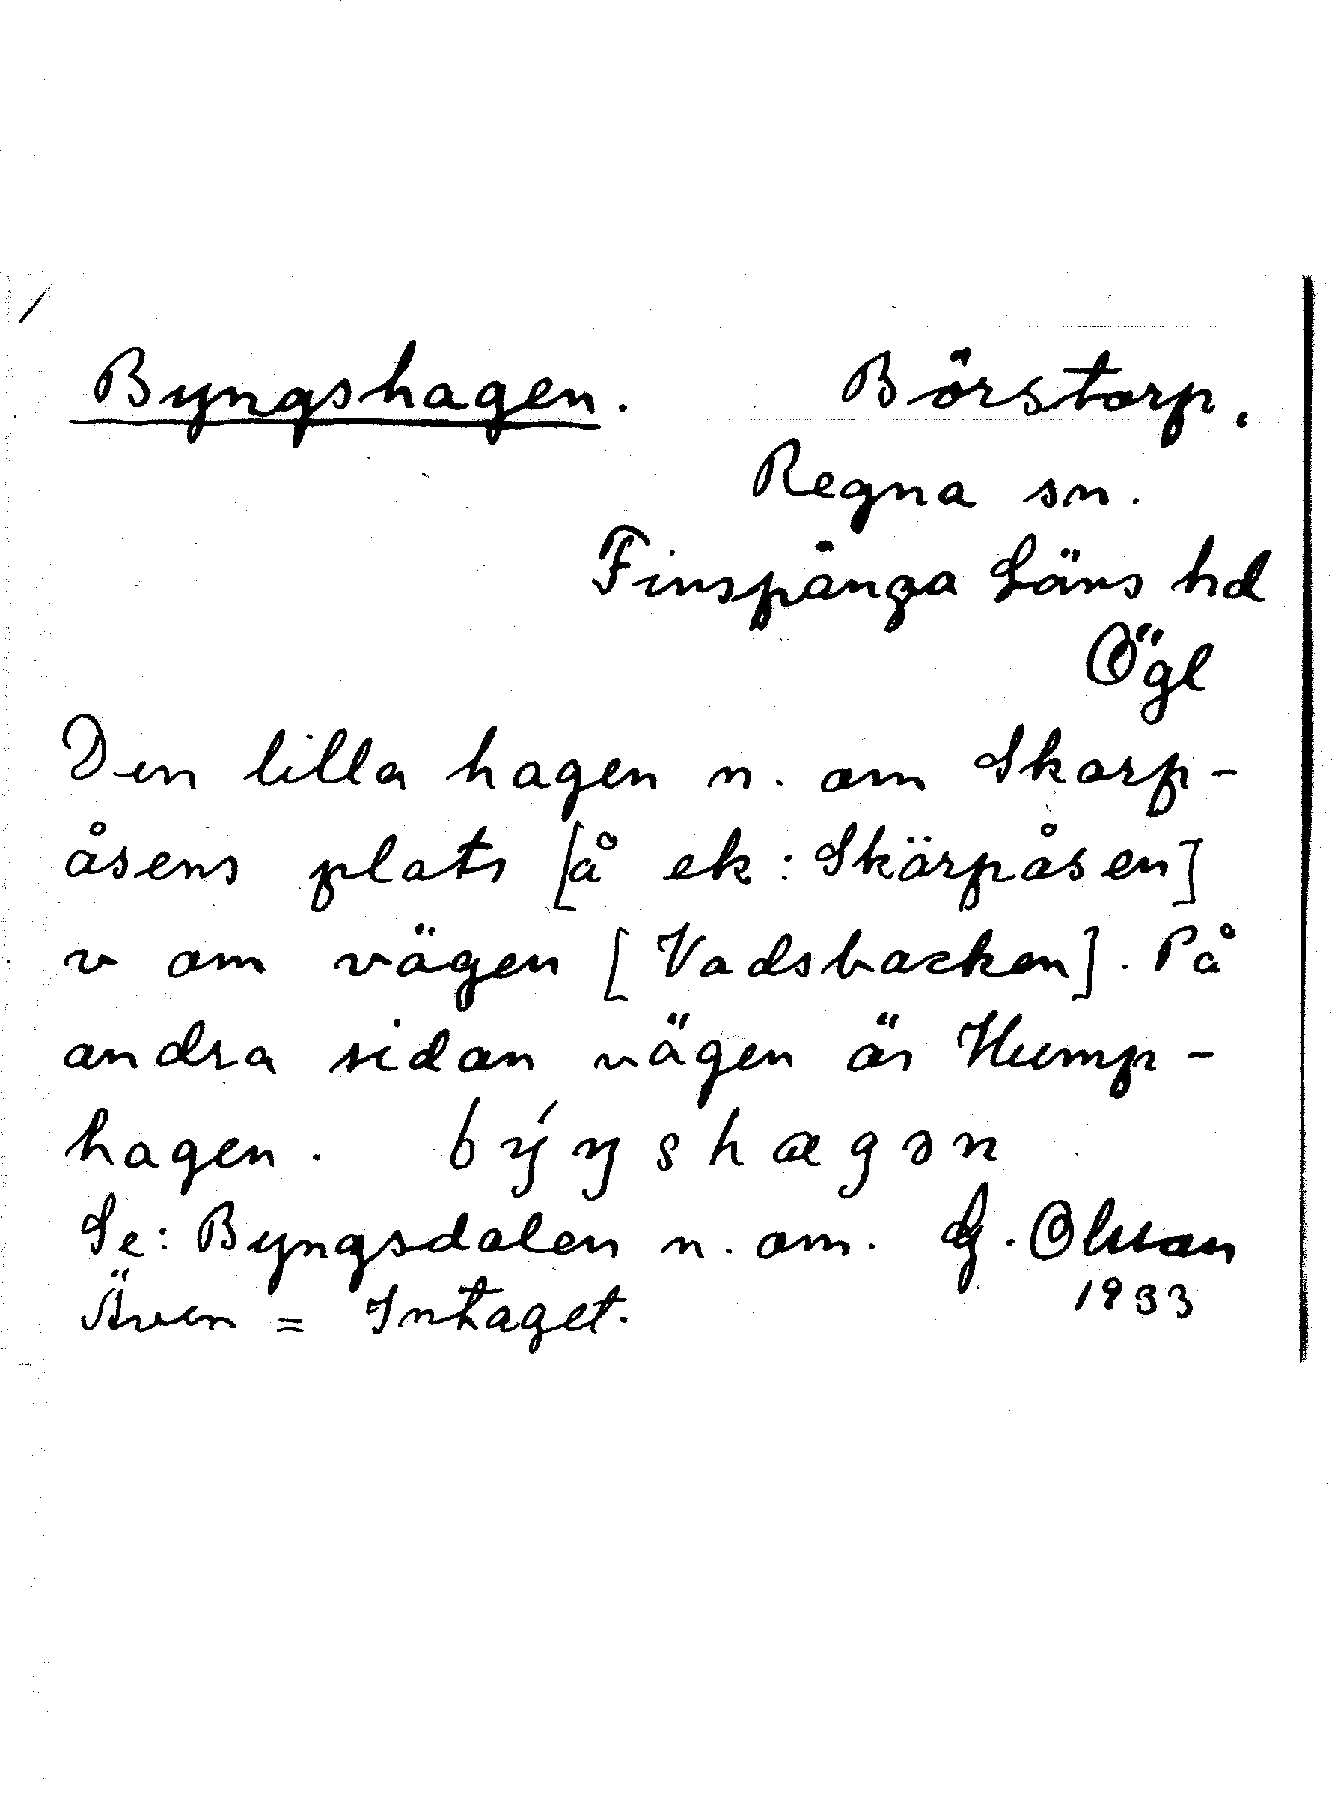 Byngshagen. Börstorp.
Regna sn.
Finspånga Läns hd
Ögl
Den lilla hagen n. om Skarp-
åsens plats [å ek: Skärpåsen]
v om vägen [Vadsbacken]. På
andra sidan vägen är Hump-
hagen. býŋshægən
Se: Byngsdalen n. om. G. Olsson
Även = Intaget. 1933